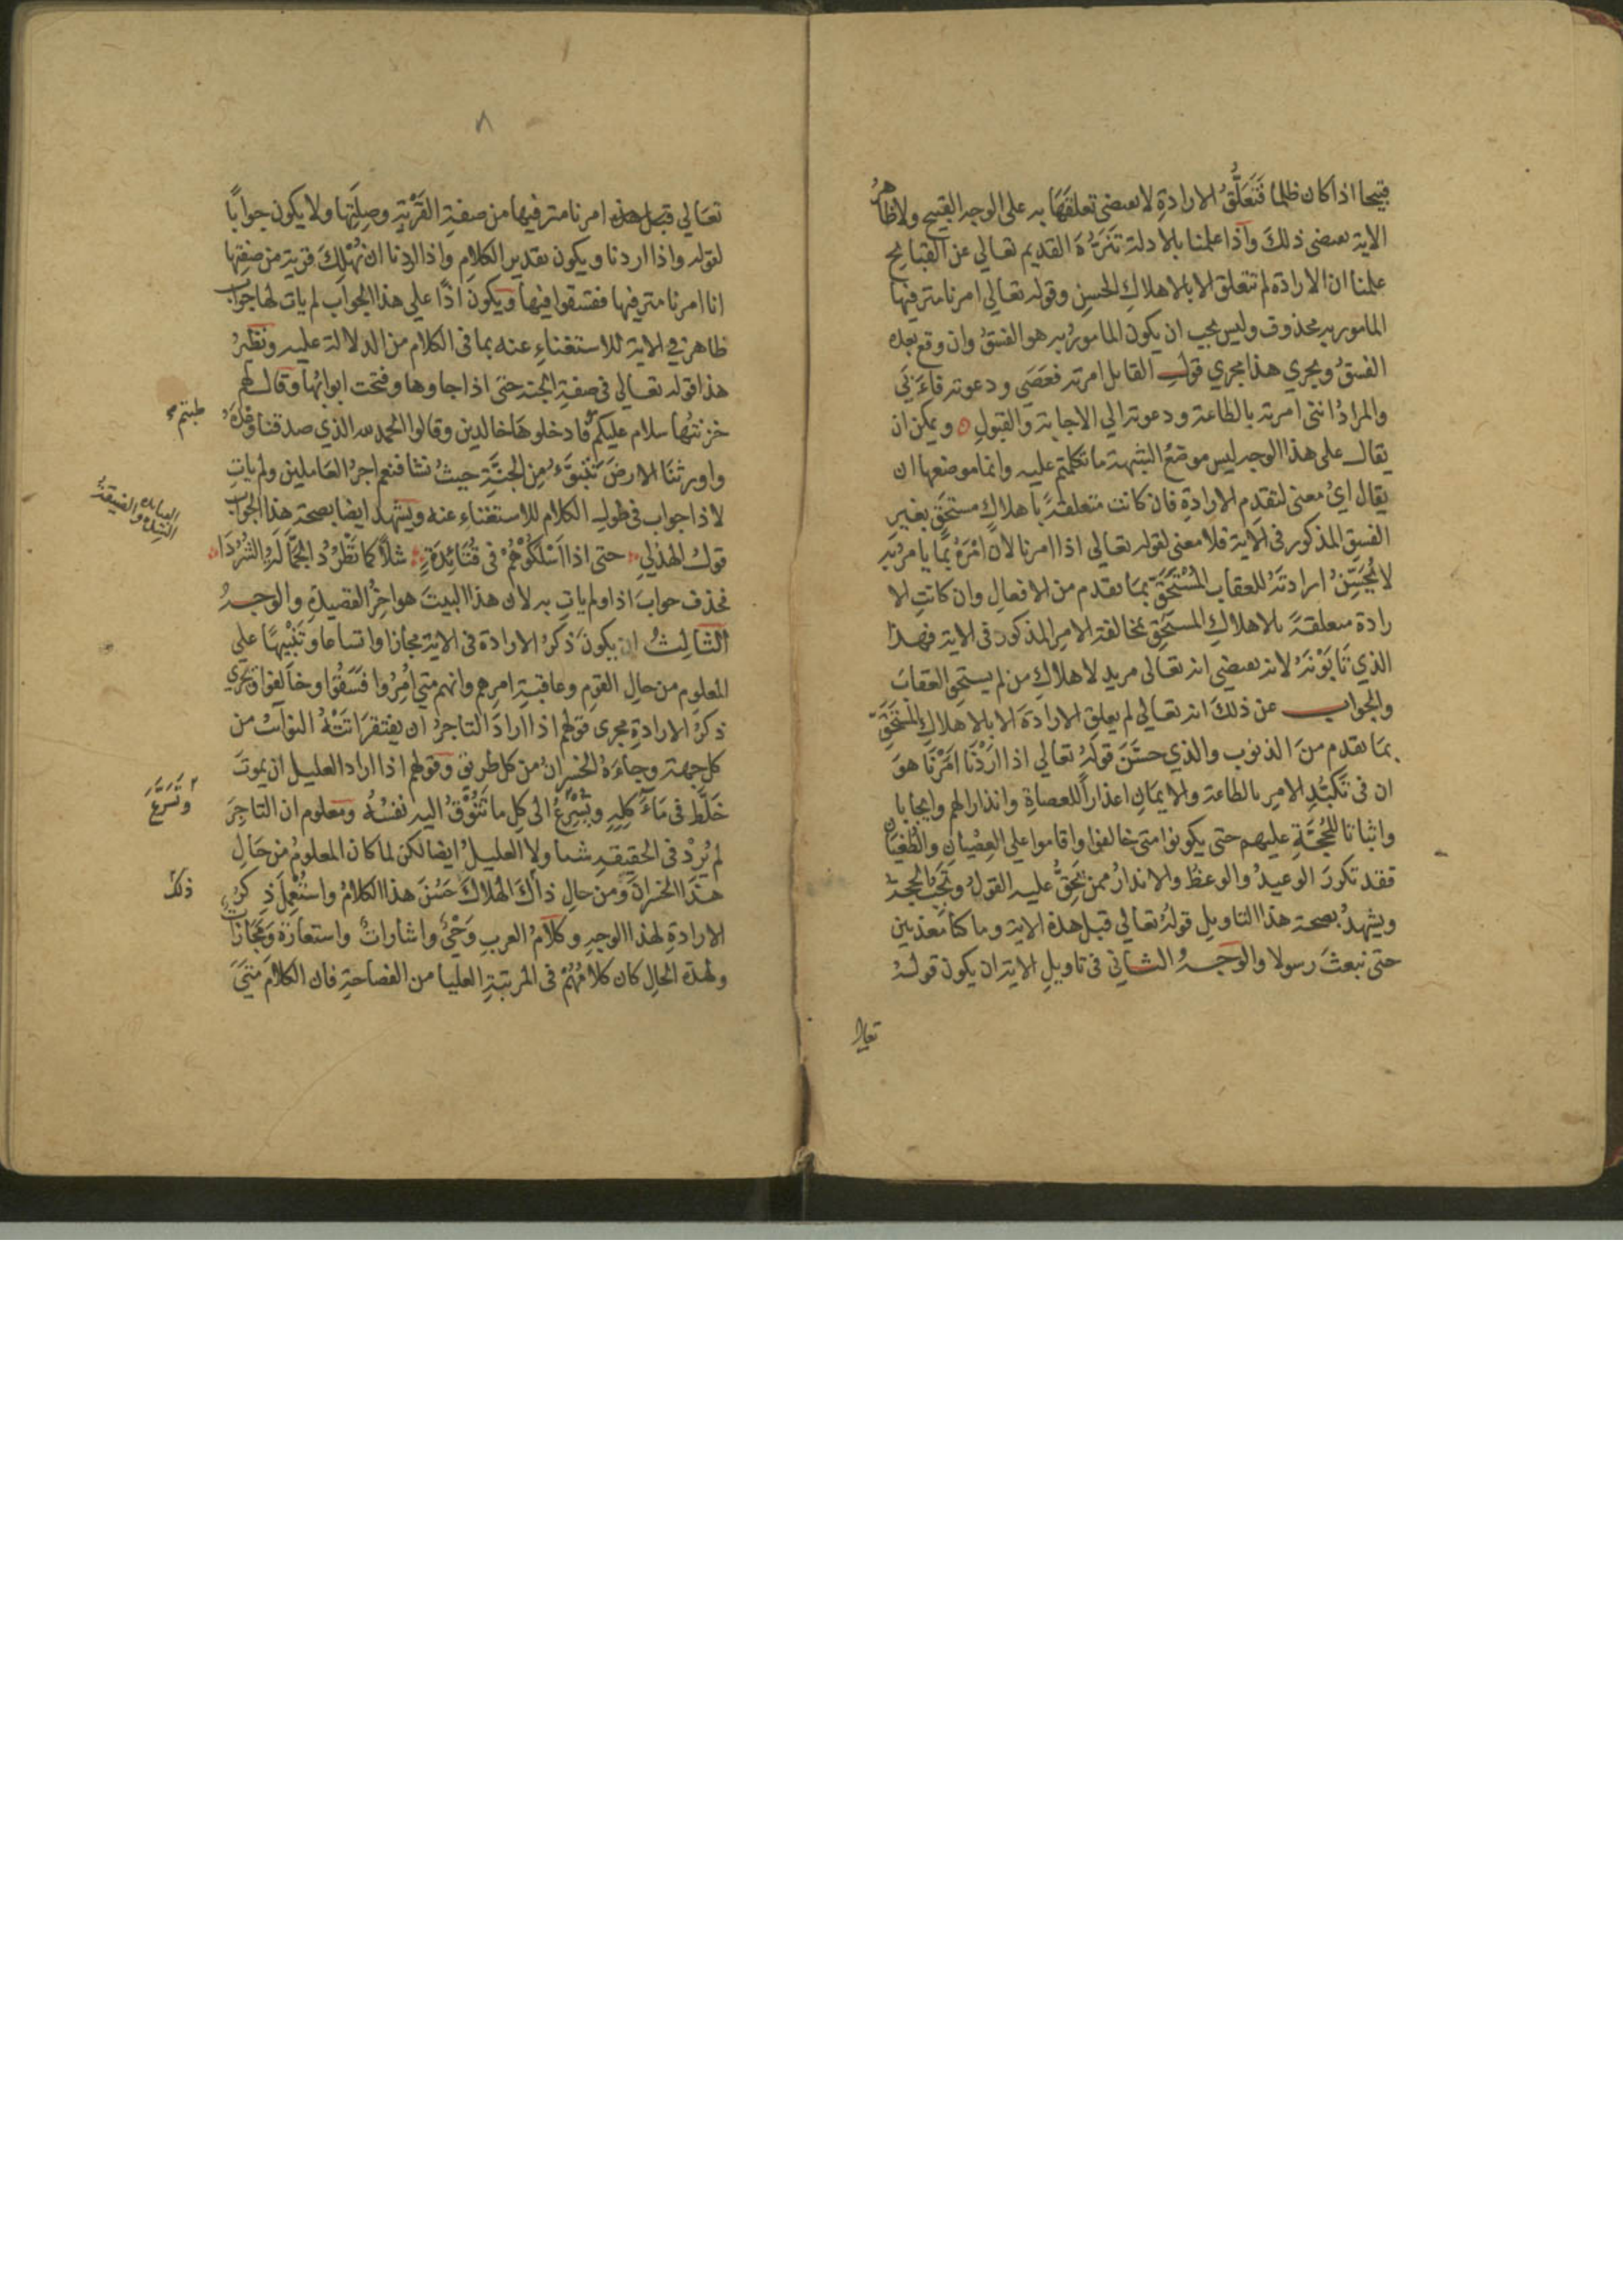 قبيحا اذا كان ظلما فَتَعَلُّقُ الارادةِ لا يقتضى تعلقَهَا به على الوجه القبيح ولا ظاهرُ
الاية يقتضى ذلكَ واذا علمنا بالادلة تَنَزُّهَ القديم تعالي عن القبايح
علمنا ان الارادة لم تتعلق الا بالاهلاكِ الحسنِ وقوله تعالي امرنا مترفيها
المامور به محذوف وليس يجب ان يكون المامورُ به هو الفسقُ وان وقع بعده
الفسقُ ويجري هذا مجري قولِ القايل امرته فعَصَي ودعوته فاَبَي
والمرادُ انني امرته بالطاعة ودعوته الي الاجابة والقبولِ ويمكن ان
يقال على هذا الوجه ليس موضعُ الشبهة ما تكلمتم عليه وانما موضعها ان
يقال ايُ معنى لتقدم الارادةِ فان كانت متعلقةً باهلاكٍ مستحَق بغير
الفسق المذكور فى الاية فلا معنى لقوله تعالي اذا امرنا لان امْرَهُ بما يامرُ به
لا يُحَسِّنُ ارادتَهُ للعقاب المُسْتَحَقِّ بما تقدم من الافعالِ وان كانتِ الا
رادة متعلقةً بالاهلاكِ المستحَقِ بمخالفة الامرِ المذكور فى الاية فهذا
الذي تَابَوْنَهُ لانه يقتضي انه تعالى مريد لاهلاكِ من لم يستحق العقابَ
والجواب عن ذلكَ انه تعالي لم يعلقِ الارادةَ الا بالاهلاكِ المُسْتَحَقِّ
بما تقدم منَ الذنوب والذي حسَّنَ قولَهُ تعالي اذا ارَدْنَا امَرْنَا هوَ
ان فى تَكَرُّرِ الامرِ بالطاعة والايمانِ اعذاراً للعصاةِ وانذارا لهم وايجابا
واثباتا للحُجَّةِ عليهم حتى يكونوا متى خالفوا واقاموا على العِصْيانِ والطُغْيَانِ
فقد تكررَ الوعيدُ والوعظُ والانذارُ ممن يَحِقُّ عليه القولُ وتَجِبُ الحجةُ
ويشهدُ بصحة هذا التاويلِ قولُه تعالي قبل هذه الاية وما كنا معَذبين
حتى نبعثَ رسولا والوَجهُ الثاني فى تاويلِ الاية ان يكون قولُهُ
تعالى
٨
تعَالي امرنا مترفيها من صفةِ القَرْيَةِ وصِلَتِهَا ولا يكون جوابًا
لقوله واذا اردنا ويكون تقدير الكلامِ واذا اردنا ان نُهْلِكَ قرية من صفتها
انا امرنا مترفيها ففسقوا فيها ويكونُ اذا علي هذا الجوابِ لم يات لها جوابٌ
ظاهر في الاية للاستغناءِ عنه بما فى الكلام من الدلالة عليه ونظيرُ
هذا قوله تعالي فى صفةِ الجنة حتى اذا جاوها وفتحت ابوابُها وقال لهم
خزنتُها سلام عليكم فادخلوهَا خالدين وقالوا الحمد لله الذي صدقنا وعْدَهُ
طبتم
واورثنَا الارضَ نَتَبَوَّءُ مِنَ الجنَّةِ حيثُ نشا فنعم اجرُ العَاملين ولم ياتِ
لاذا جواب فى طولِ الكلام للاستغناء عنه ويشهد ايضا بصحة هذا الجوابِ
قولُ الهذلي حتى اذا اَسْلَكُوْهُمْ فى قُتَائِدَةٍ شلاًّ كما تَطْرُدُ الجَمَّالَةُ الشُرُدَا
فحذف جوابَ اذا ولم ياتِ به لان هذا البيتَ هو اخِرُ القصيدةِ والوجهُ
الثالِثُ ان يكونَ ذكرُ الارادة فى الاية مجازا واتساعا وتَنْبيهًا علي
المعلوم من حالِ القومِ وعاقبةِ امرهم وانهم متي اُمِرُوا فَسَقُوا وخالفوا ويجرِي
ذكرُ الارادةِ مجرى قولهم اذا ارادَ التاجرُ ان يفتقرَ اتَتْهُ النوائبُ من
كل جهة وجاءَهُ الخسرانُ من كل طريق وقولهم اذا اراد العليل ان يموتَ
خَلَّط فى مَاءَكلِهِ وتسرَّعَ الى كلِ ما تَتُوْقُ اليه نفسُهُ ومعلوم ان التاجِرَ
وتَسَرَّعَ
لم يُرِدْ فى الحقيقةِ شيا ولا العليلُ ايضا لكن لما كان المعلومُ من حَالِ
هذا الخسرانَ ومن حالِ ذاك الهلاكَ حَسُنَ هذا الكلامُ واستُعْمِلَ ذِكرُ
ذلك
الارادةِ لهذا الوجهِ وكلامُ العربِ وَحْيٌ واشاراتٌ واستعارَةٌ ومَجَازَاتٌ
ولهذه الحال كان كلامُهُمْ فى المرتبةِ العليا من الفصاحةِ فان الكلامَ متيَ